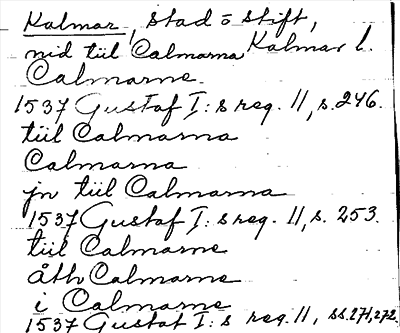 Kalmar, stad o stift,
Kalmar l.
nid tiil Calmarna
Calmarne.
1537 Gustaf I:s reg. 11, s. 246.
tiil Calmarna
Calmarna
jn tiil Calmarna
1537 Gustaf I:s reg. 11, s. 253.
tiil Calmarne
åth Calmarne
i Calmarne
1537 Gustaf I:s reg. 11, ss. 271, 272.